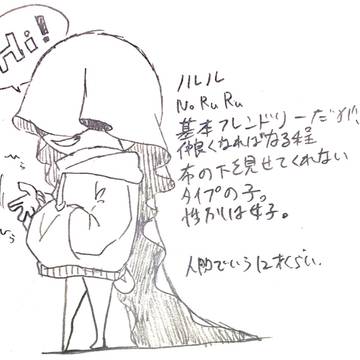 Hi!
ノルル
NoRuRu
基本フレンドリーだが、
仲良くなればなる程
布の下を見せてくれない
タイプの子。
性別は女子。
人間でいう12才くらい.